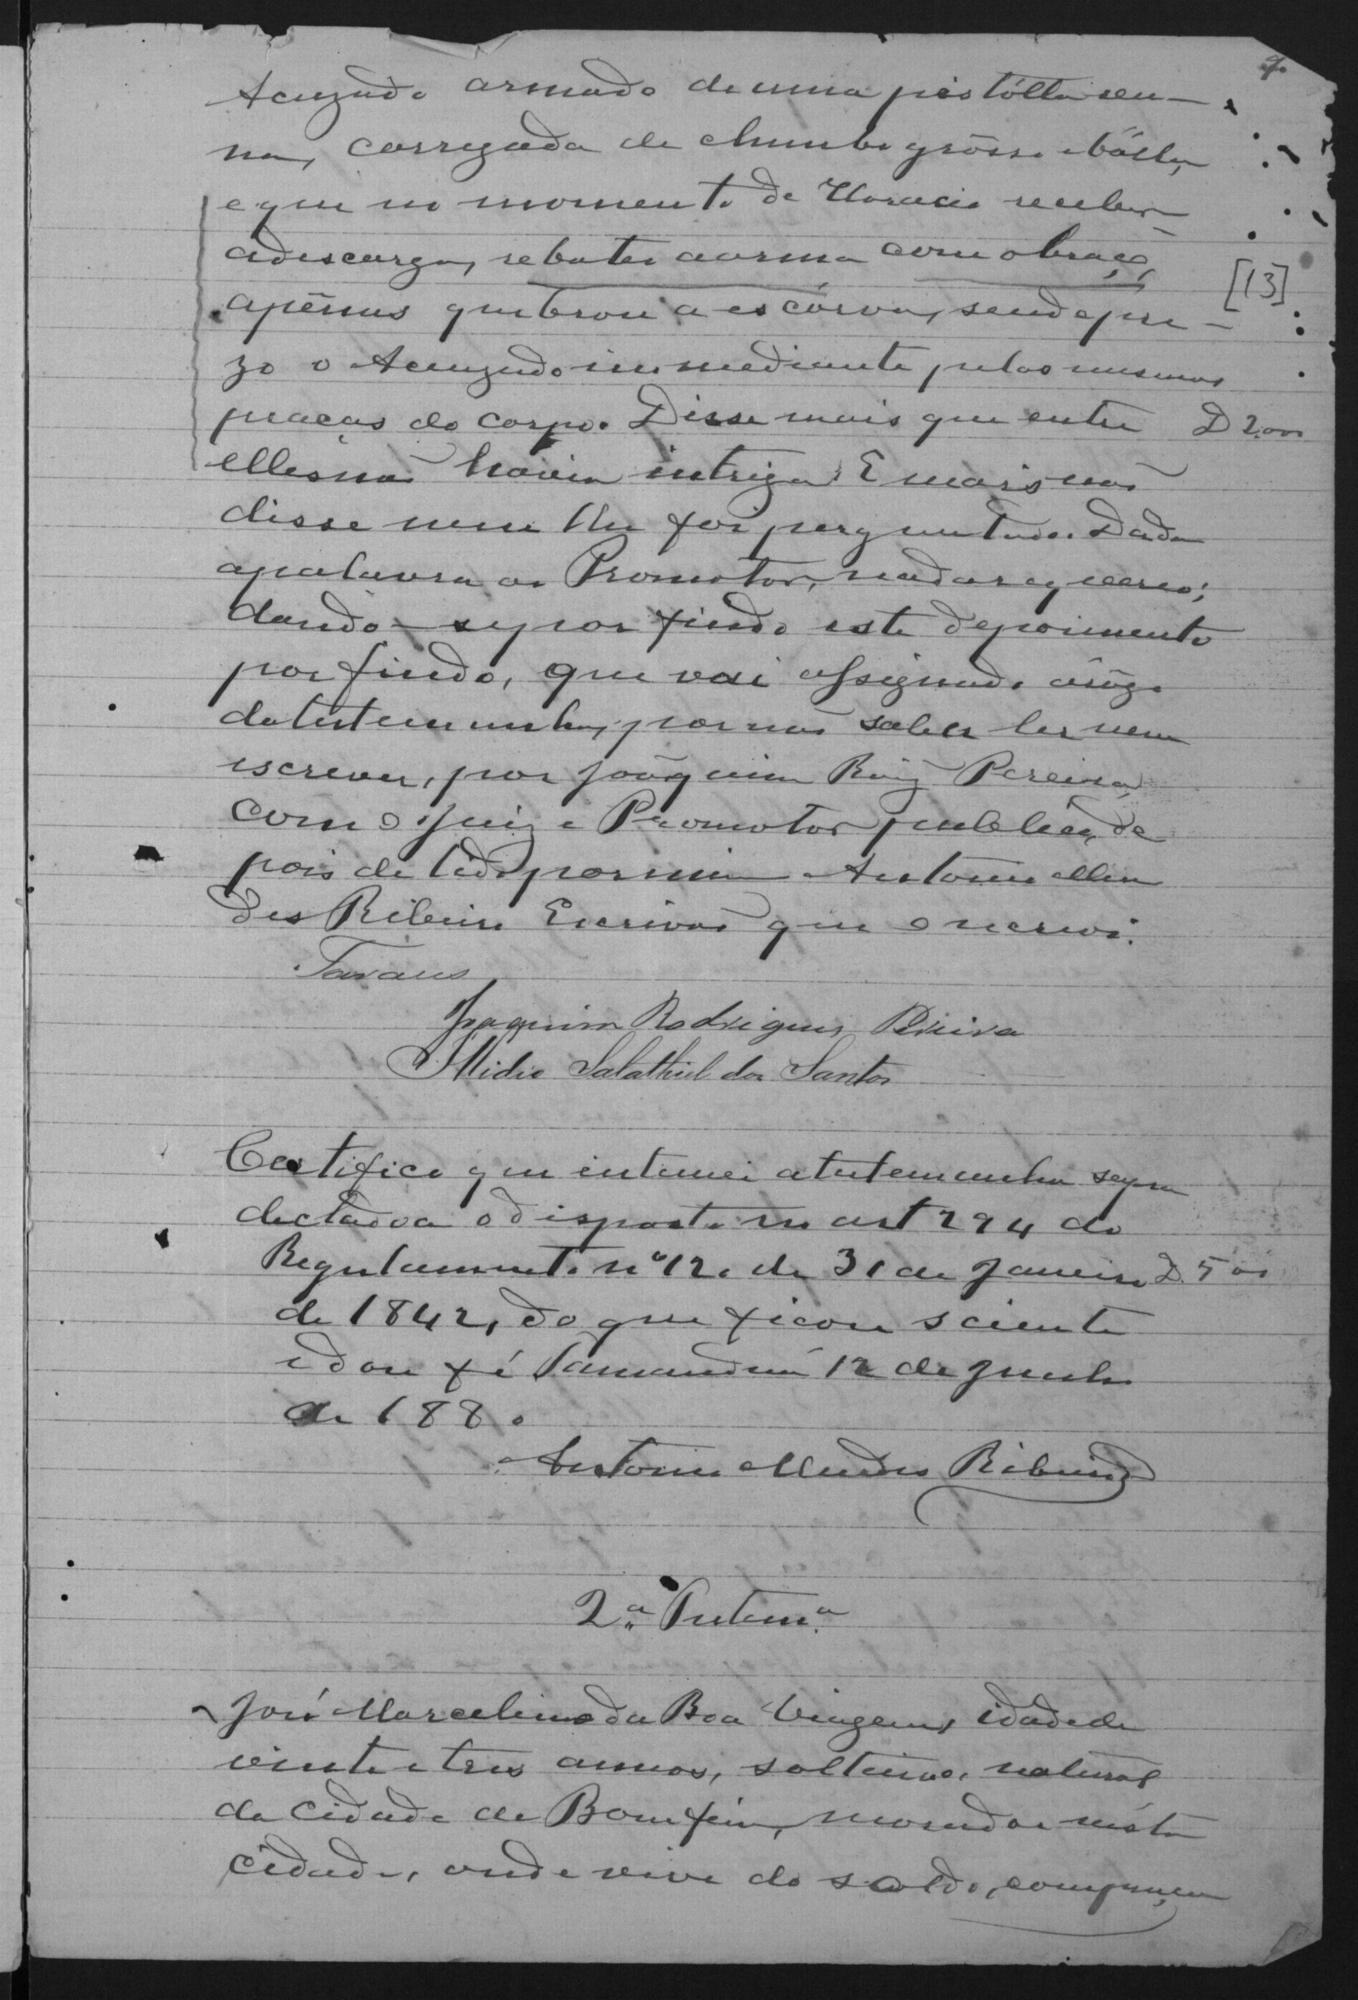 9
Acuzado armado de uma pistólla reu-
na, carregada de chumbo grôsso e bálla,
e que no momento de Horacio receber
a descarga, rebateo a arma com o braço,
[13]
apênas quebrou a escórva, sendo pre-
zo o Acuzado immediante pelos mesmos
praças do corpo. Disse mais que entre
D 2.000
elles não havia intriga. E mais não
disse nem lhe foi perguntado. Dada
a palavra ao Promotor, nada requereo;
dando-se por findo este depoimento
por findo, que vai assignado a rôgo
da testemunha, por não saber ler nem
escrever, por Joaquim Roiz Pereira,
com o Juiz e Promotor publico, de
pois de lido por mim Antonio Men
des Ribeiro Escrivão que o escrevi.
Tavares
Joaquim Rodrigues Pereira
Illidio Salathiel dos Santos
Certifico que intimei a testemunha supra
declarada o disposto no art 294 do
Regulamento nº 120 de 31 de Janeiro
D. 500
de 1842, do que ficou sciente
e dou fé Tamanduá 12 de Junho
de 1880
Antonio Mendes Ribeiro
2ª Testemª
José Marcelino da Boa Viagem, idade de
vinte e tres annos, solteiro, natural
da Cidade de Bomfim, morador nésta
cidade, onde vive do soldo, compareceu